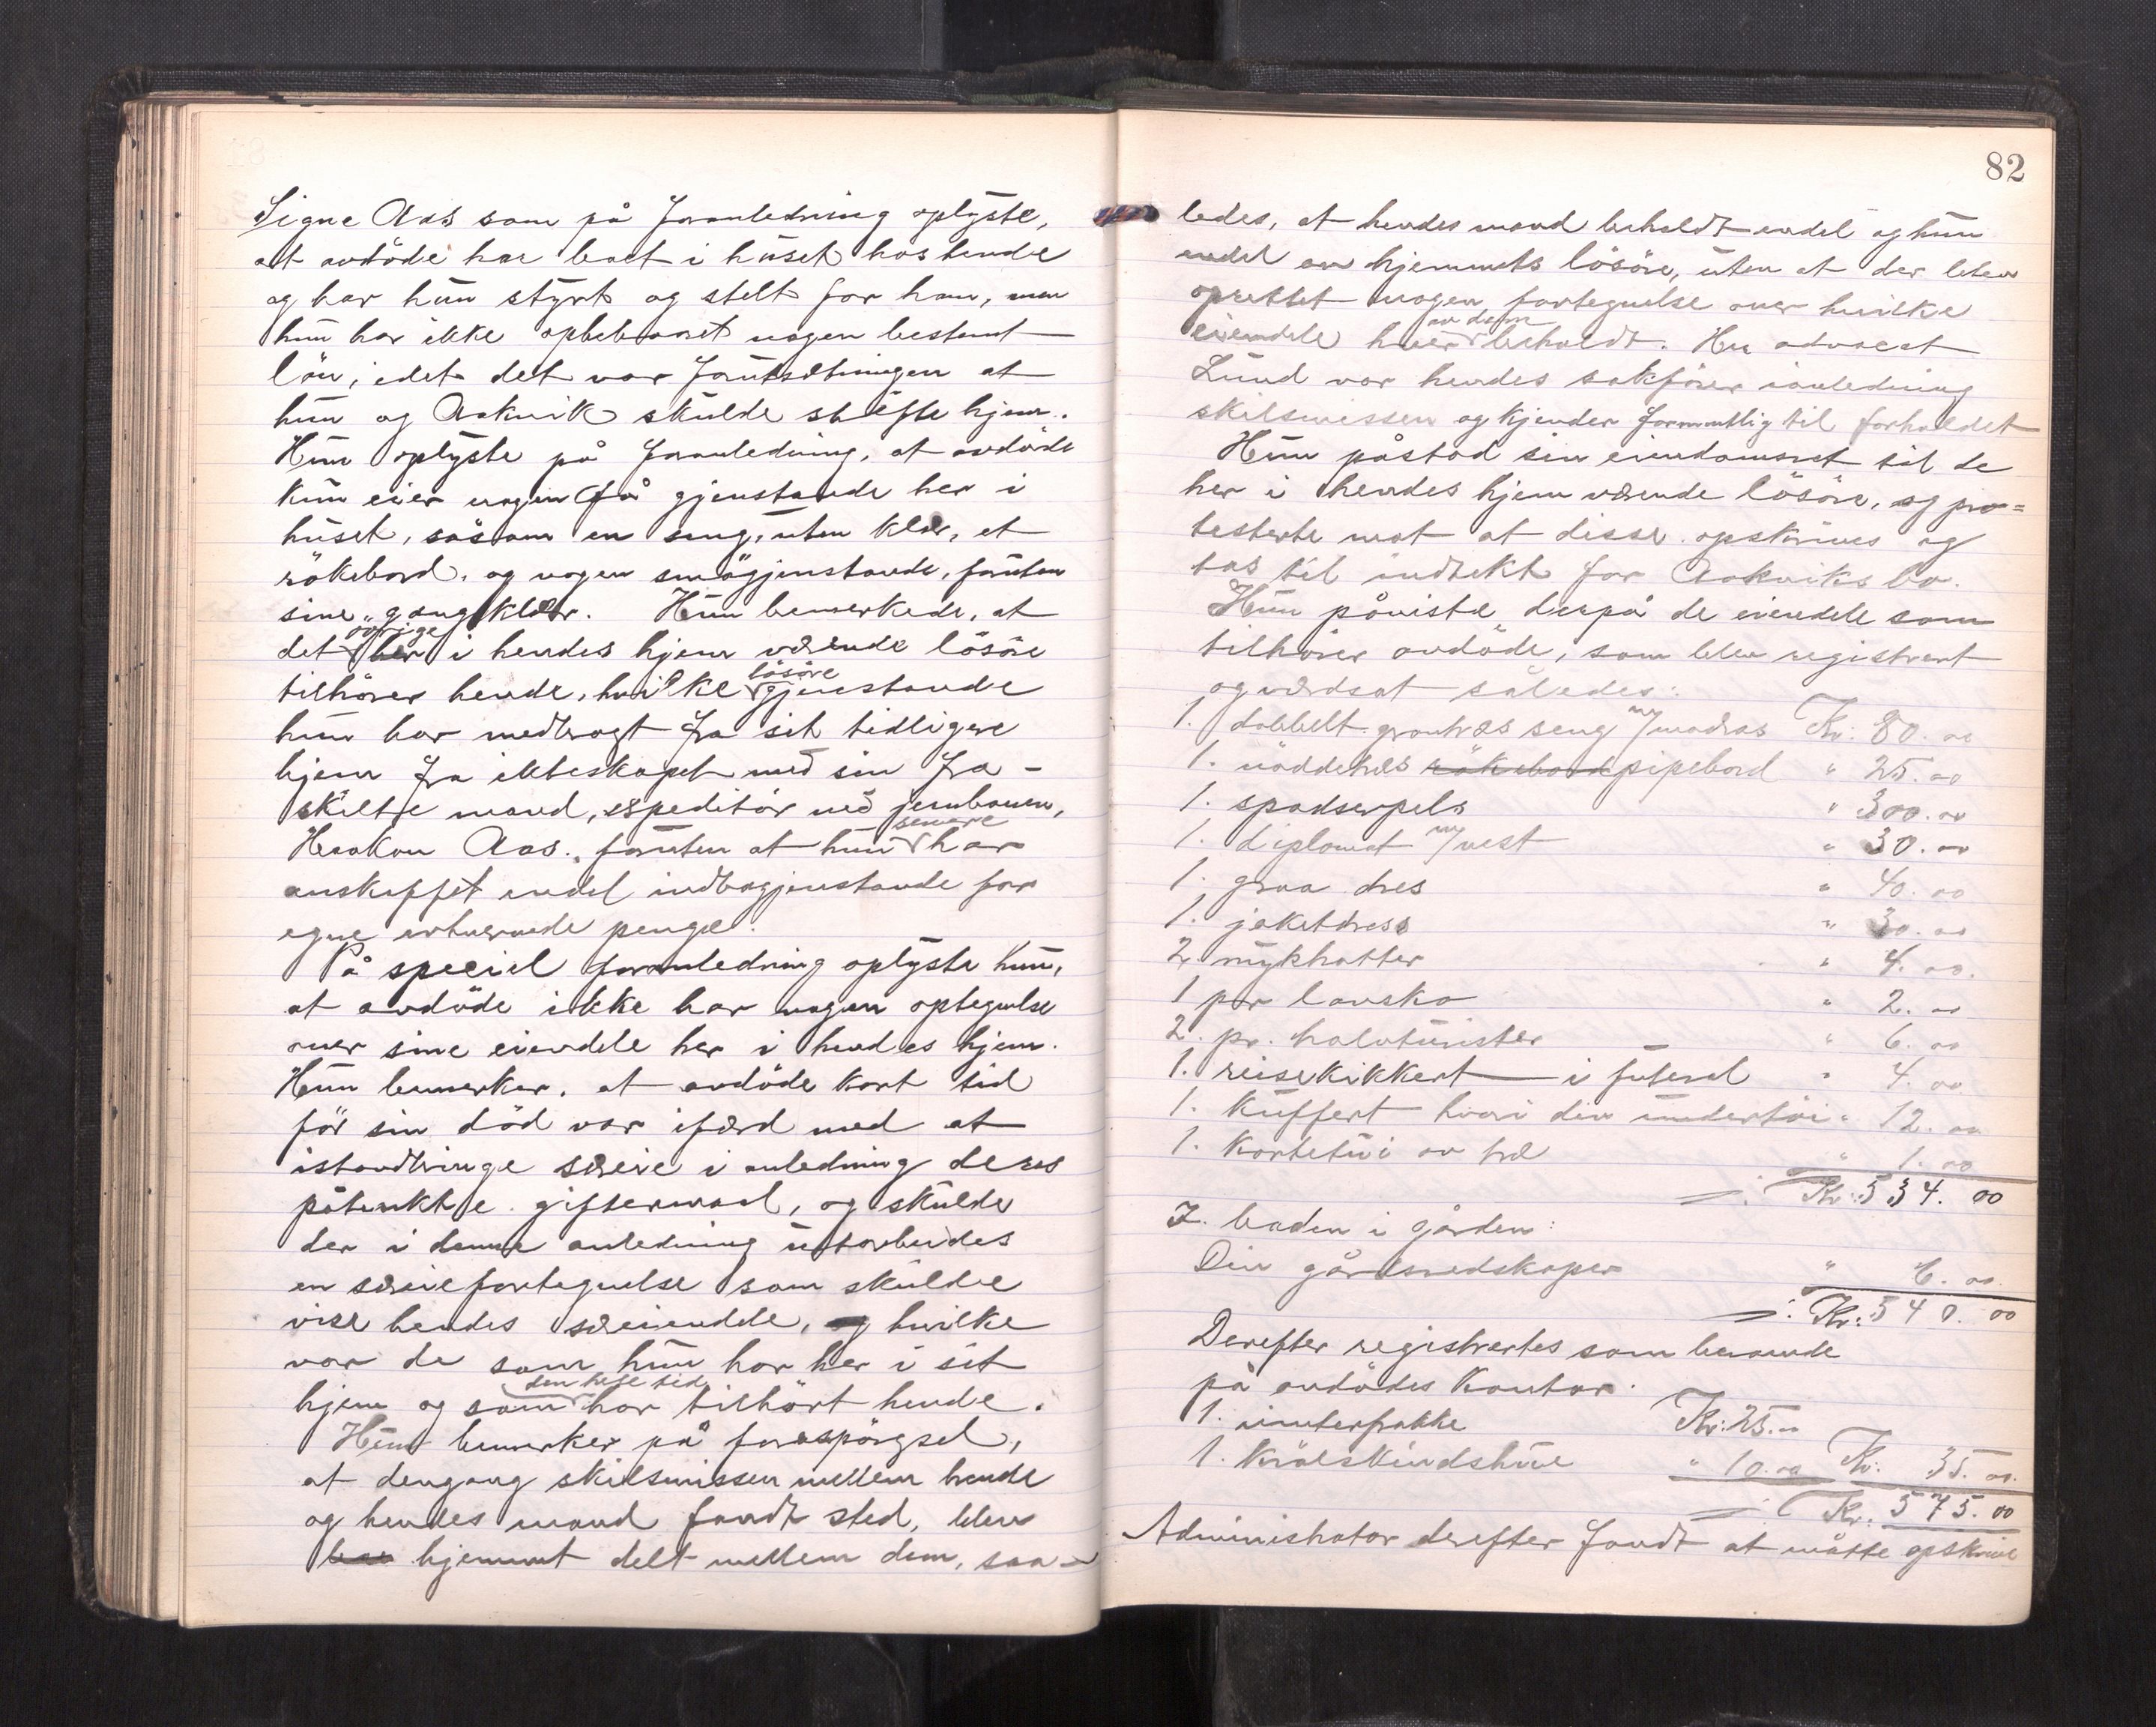 Signe Aas som på foranledning oplyste,
at avdöde har boet i huset hos hende
og har hun styrt og stelt for ham, men
hun har ikke opbebaaret nogen bestemt
lön, idet det var forutsetningen at
hun og Aakvik skulde stifte hjem.
Hun oplyste på foranledning, at avdöde
kun eier nogen få gjenstande her i
huset, såsom en seng, uten klær, et
rökebord, og nogen smågjenstande, foruten
sine gangklær. Hun bemerkede, at
det övrige her i hendes hjem værende lösöre
tilhörer hende, hvilke lösöre gjenstande
hun har medbragt fra sit tidligere
hjem fra ekteskapet med sin fra-
skilte mand, expeditör ved jernbanen,
Haakon Aas, foruten at hun senere har
anskaffet endel indbogjenstande for
egne erhvervede penge.
På speciel foranledning oplyste hun,
at avdöde ikke har nogen optegnelse
over sine eiendele her i hendes hjem.
Hun bemerker, at avdöde kort tid
för sin död var ifærd med at
istandbringe særeie i anledning deres
påtenkte giftermaal, og skulde
der i denne anledning utarbeides
en særeiefortegnelse som skulde
vise hendes særeiendele, og hvilke
var de som hun har her i sit
hjem og som den hele tid har tilhört hende.
Hun bemerker på forespörgsel,
at dengang skilsmissen mellem hende
og hendes mand fandt sted, blev
hjemmet delt mellem dem, saa-
82
ledes, at hendes mand beholdt endel og hun
endel av hjemmets lösöre, uten at der blev
oprettet nogen fortegnelse over hvilke
eiendele hver av dem beholdt. Hr. advocat
Lund var hendes sakförer i anledning
skilsmissen og kjender formentlig til forholdet
Hun påstod sin eiendomsret til de
her i hendes hjem værende lösöre, og pro=
testerte mot at disse opskrives og
tas til indtekt for Aakviks bo.
Hun påviste derpå de eiendele som
tilhörer avdöde, som blev registrert
og værdsat således:
1. dobbelt grantræs seng m/ madras Kr: 80.00
1. nöddetræs rökebord pipebord " 25.00
1. spadserpels " 300.00
1. diplomat m/ vest " 30.00
1. graa dres " 40.00
1. jaketdress " 30.00
2. mykhatter " 4.00.
1 par lavsko " 2.00
2. pr. halvturister " 6.00
1. reisekikkert i futeral " 4.00
1. kuffert hvori div undertöi " 12.00
1. kortetui av træ " 1.00
Kr: 534.00
I boden i gården:
Div gårdsredskaper " 6.00.
Kr: 540.00
Derefter registrertes som beroende
på avdödes kontor.
1. vinterfrakke Kr: 25.00
1. kraveskindshue " 10.00 Kr. 35.00.
Kr. 575.00
Administrator derefter fandt at måtte opskrive